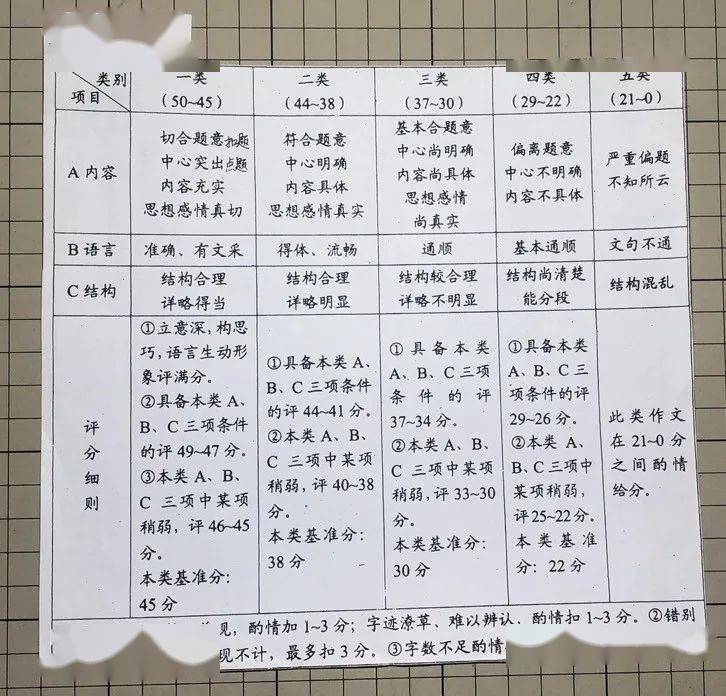 类别 一类 二类 三类 四类 五类
项目 (50~45) (44~38) (37~30) (29~22) (21~0)
A 内容
切合题意扣题
中心突出点题
内容充实
思想感情真切
符合题意
中心明确
内容具体
思想感情真实
基本合题意
中心尚明确
内容尚具体
思想感情
尚真实
偏离题意
中心不明确
内容不具体
严重偏题
不知所云
B 语言 准确、有文采 得体、流畅 通顺 基本通顺 文句不通
C 结构
结构合理
详略得当
结构合理
详略明显
结构较合理
详略不明显
结构尚清楚
能分段
结构混乱
评
分
细
则
①立意深,构思
巧,语言生动形
象评满分。
②具备本类 A、
B、C 三项条件
的评 49~47 分。
③本类 A、B、
C 三项中某项
稍弱,评 46~45
分。
本类基准分:
45 分
①具备本类 A、
B、C 三项条件
的评 44~41 分。
②本类 A、B、
C 三项中某项
稍弱,评 40~38
分。
本类基准分:
38 分
①具备本类
A、B、C 三项
条件的评
37~34 分。
②本类 A、B、
C 三项中某项
稍弱,评 33~30
分。
本类基准分:
30 分
①具备本类
A、B、C 三
项条件的评
29~26 分。
②本类 A、
B、C 三项中
某项稍弱,
评25~22分。
本类基准
分:22 分
此类作文
在 21~0 分
之间酌情
给分。
见,酌情加 1~3 分;字迹潦草、难以辨认、酌情扣 1~3 分。②错别
现不计,最多扣 3 分。③字数不足酌情